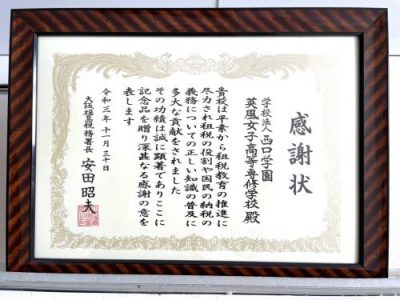 感謝状
学校法人西口学園
英風女子高等専修学校 殿
貴校は平素から租税教育の推進に
尽力され租税の役割や国民の納税の
義務についての正しい知識の普及に
多大な貢献をされました
その功績は誠に顕著でありここに
記念品を贈り深甚なる感謝の意を
表します
令和三年十一月三十日
大阪福島税務署長 安田昭夫